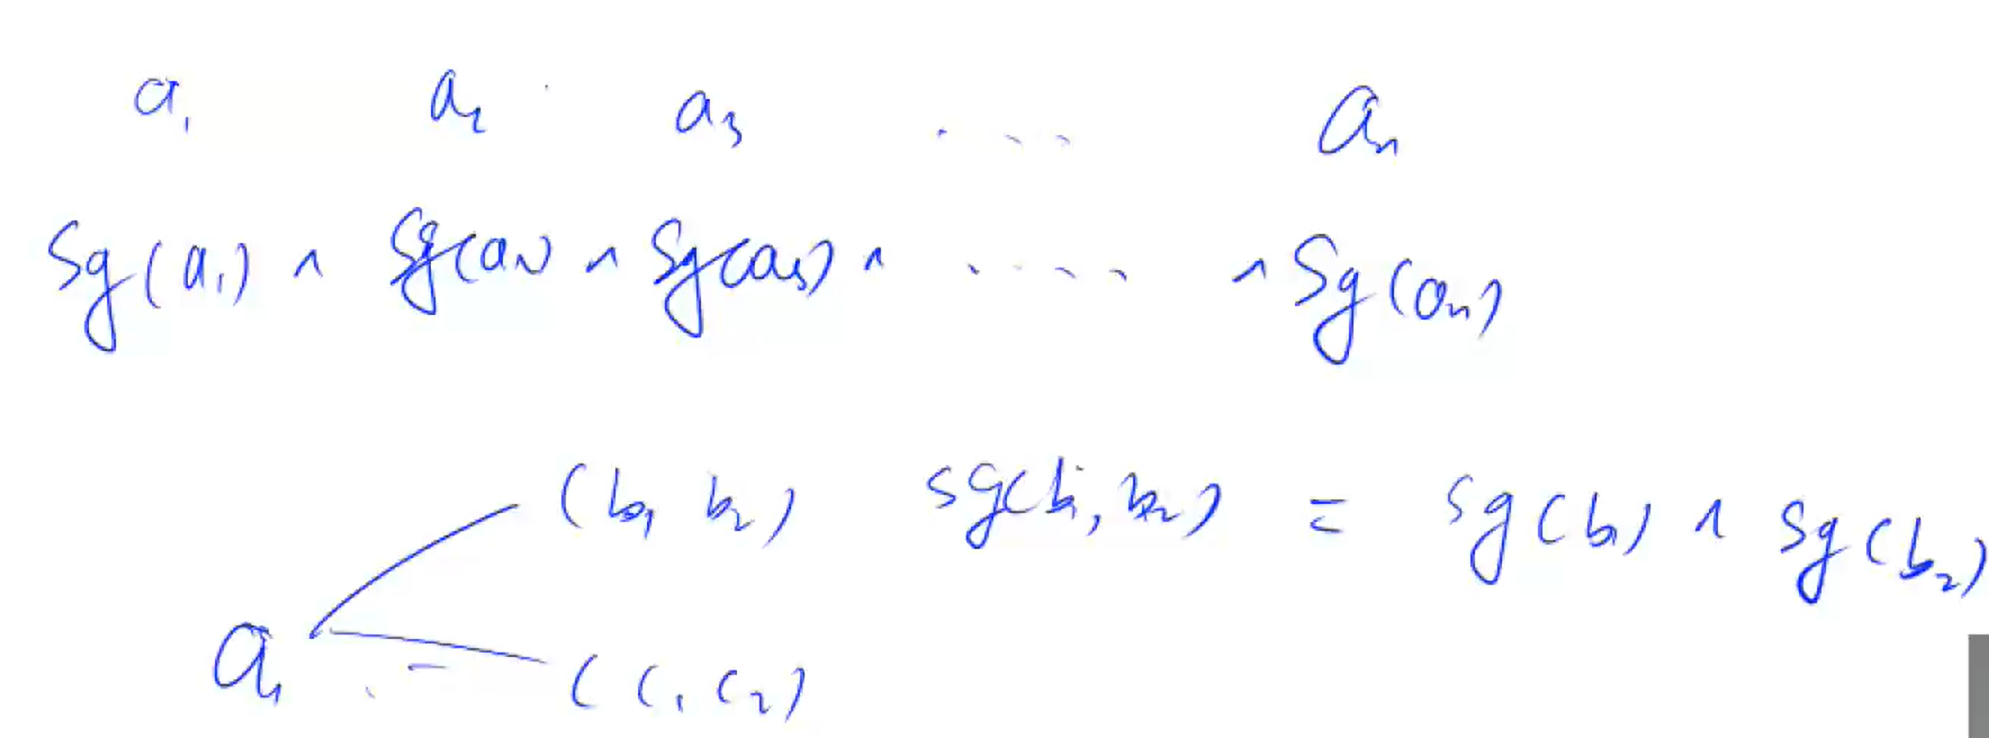 a₁ a₂ a₃ ... aₙ
Sg(a₁) ^ Sg(a₂) ^ Sg(a₃) ^ .... ^ Sg(aₙ)
(b₁ b₂) sg(b₁, b₂) = sg(b₁) ^ sg(b₂)
a₁ (c₁ c₂)